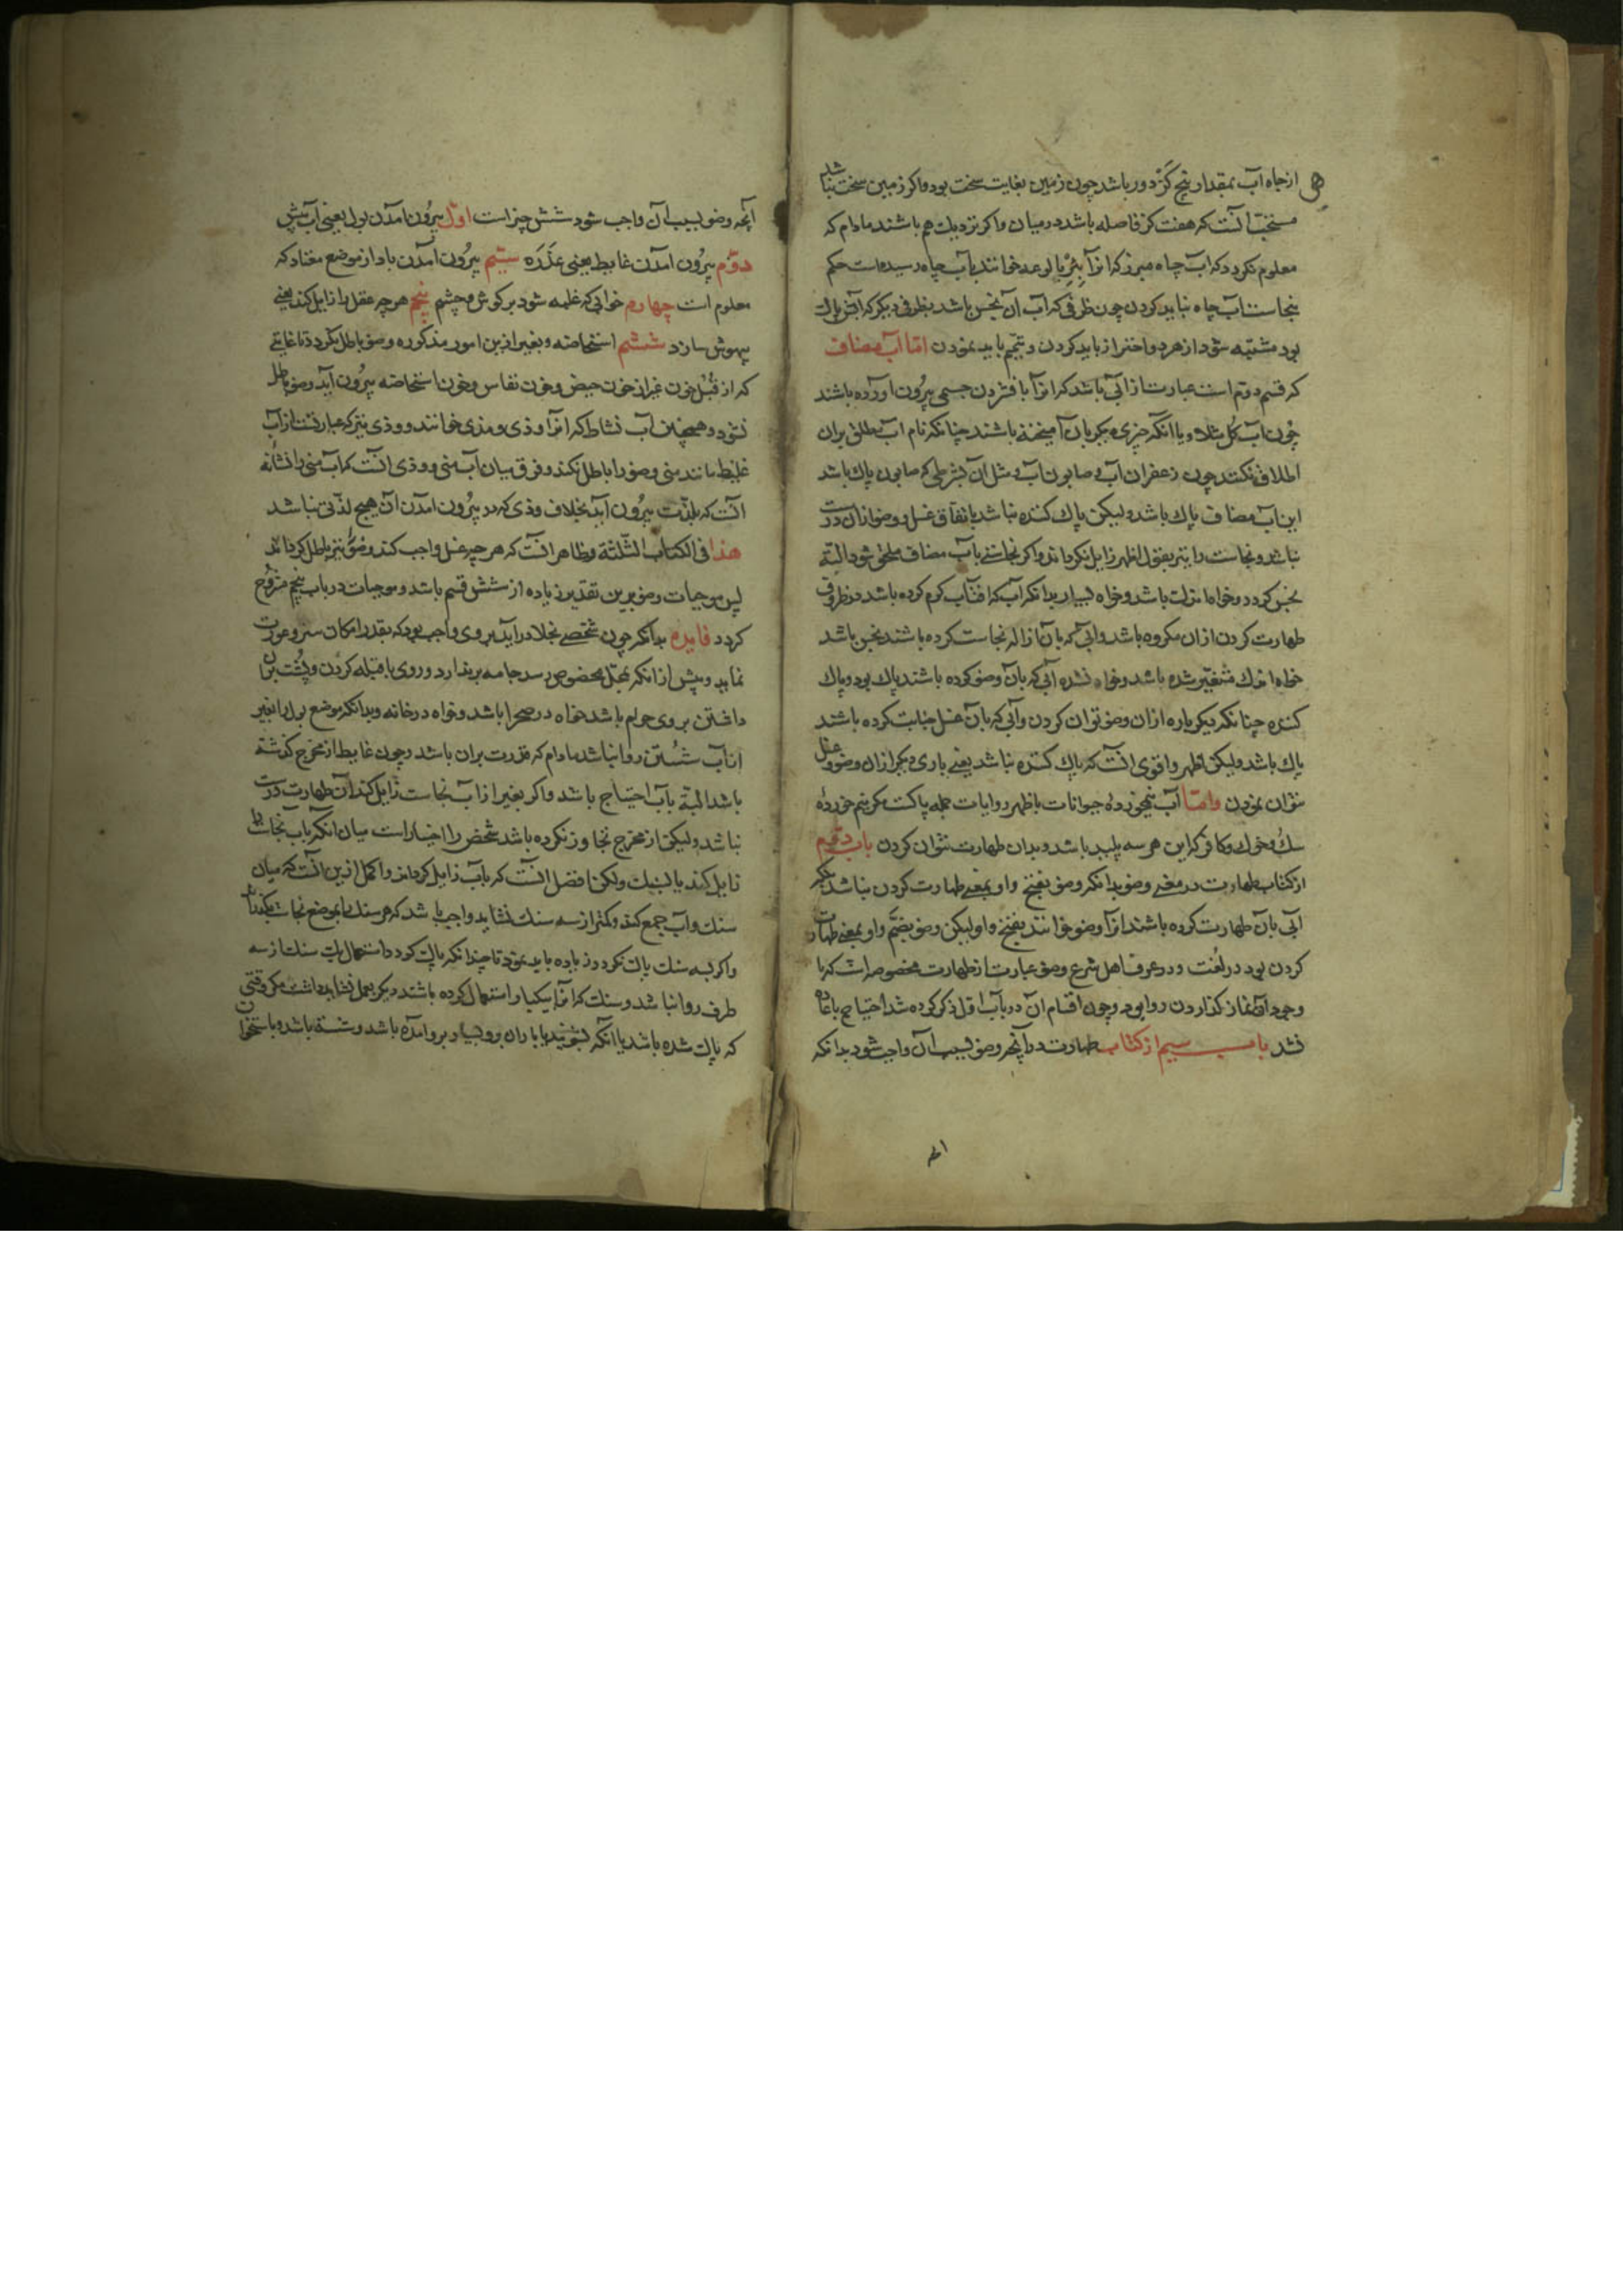 از چاه آب بمقدار پنج گز دور باشد چون زمین بغایت سخت بود و اکر زمین سخت نباشد
مستحب آنست که هفت کز فاصله باشد در میان و اکر نزدیک هم باشند مادام که
معلوم نکردد که آب چاه مبرز که انرا بئر بالوعه خوانند بآب چاه رسیده است حکم
بنجاست آب چاه نباید کردن چون ظرفی که آب آن نجس باشد بظرفی دیکر که آبش پاک
بود مشتبه شود از هر دو احتراز باید کردن و تیمم باید نمودن اما آب مضاف
که قسم دوم است عبارتست از آبی باشد که انرا بافشردن جسمی بیرون آورده باشند
چون آب کل مثلا و یا آنکه چیزی دیکر بآن آمیخته باشند چنانکه نام آب مطلق بران
اطلاق نکنند چون زعفران آب و صابون آب و مثل آن بشرطی که صابون پاک باشد
این آب مضاف پاک باشد ولیکن پاک کننده نباشد باتفاق غسل و وضو ازان درست
نباشد و نجاست را نیز بقول اظهر زایل نکرداند و اکر نجاستی بآب مضاف ملحق شود البته
نجس کردد و خواه اندک باشد و خواه بسیار بدانکه آب که افتاب کرم کرده باشد در ظروف
طهارت کردن ازان مکروه باشد و آبی که بآن ازاله نجاست کرده باشند نجس باشد
خواه اندک متغیر شده باشد و خواه نشده آبی که بآن وضو کرده باشند پاک بود و پاک
کننده چنانکه دیکر باره ازان وضو توان کردن و آبی که بآن غسل جنابت کرده باشند
پاک باشد ولیکن اظهر و اقوی آنست که پاک کننده نباشد یعنی باری دیکر ازان وضو و غسل
نتوان نمودن و اما آب نیمخورده حیوانات باظهر روایات جمله پاکست مکر نیم خورده
سک و خوک و کافر که این هر سه پلید باشد و بدان طهارت نتوان کردن باب دوم
از کتاب طهارت در معنی وضو بدانکه وضو بفتح واو بمعنی طهارت کردن نباشد بلکه
آبی بآن طهارت کرده باشند انرا وضو خوانند بفتح واو لیکن وضو بضم واو بمعنی طهارت
کردن بود در لغت و در عرف اهل شرع وضو عبارتست از طهارت مخصوصه است که با
وجود آن نماز کذاردن روا بود و چون اقسام آن در باب اول ذکر کرده شد احتیاج باعاده
نشد باب سیم از کتاب طهارت در آنچه وضو بسبب آن واجب شود بدانکه
آنچه وضو بسبب آن واجب شود شش چیز است اول بیرون آمدن بول یعنی آب پیش
دوم بیرون آمدن غایط یعنی عذره سیم بیرون آمدن باد از موضع معتاد که
معلوم است چهارم خوابی که غلبه شود بر کوش و چشم پنجم هر چه عقل را زایل کند یعنی
بیهوش سازد ششم استحاضه و بغیر ازین امور مذکوره وضو باطل نکردد تا غایتی
که از قبل خون غیر از خون حیض و خون نفاس و خون استحاضه بیرون آید وضو باطل
نشود و همچنین آب نشاط که انرا وذی و مذی خوانند و ودی نیز که عبارتست از آب
غلیظ مانند منی وضو را باطل نکند و فرق میان آب منی و وذی آنست که آب منی را نشانه
آنست که بلذت بیرون آید بخلاف وذی که در بیرون آمدن آن هیچ لذتی نباشد
هذا فی الکتاب الثلثة و ظاهر آنست که هر چه غسل واجب کند وضو نیز باطل کرداند
پس موجبات وضو برین تقدیر زیاده از شش قسم باشد و موجبات در باب پنجم مشروح
کردد فایده بدانکه چون شخصی بخلا درآید بر وی واجب بود که بقدر امکان ستر و عورت
نماید و پیش از آنکه بمحل مخصوص رسد جامه برندارد و روی بقبله کردن و پشت بران
داشتن بر وی حرام باشد خواه در صحرا باشد و خواه در خانه و بدانکه موضع بول را بغیر
از آب شستن روا نباشد مادام که قدرت بران باشد و چون غایط از مخرج کذشته
باشد البته بآب احتیاج باشد و اکر بغیر از آب نجاست زایل کند آن طهارت درست
نباشد ولیکن از مخرج تجاوز نکرده باشد شخص را اختیار است میان آنکه بآب نجاست را
زایل کند یا بسنک ولکن افضل آنست که بآب زایل کرداند و اکمل ازین آنست که میان
سنک و آب جمع کند و کمتر از سه سنک نشاید و واجب باشد که هر سنک را بموضع نجاست بکذراند
و اکر بسه سنک پاک نکردد زیاده باید نمود تا چندانکه پاک کردد و استعمال یک سنک از سه
طرف روا نباشد و سنک که انرا یکبار استعمال کرده باشند دیکر بعمل نشاید داشت مکر وقتی
که پاک شده باشد یا آنکه بشویند یا باران برو بسیار برو آمده باشد و شسته باشد و باستخوان